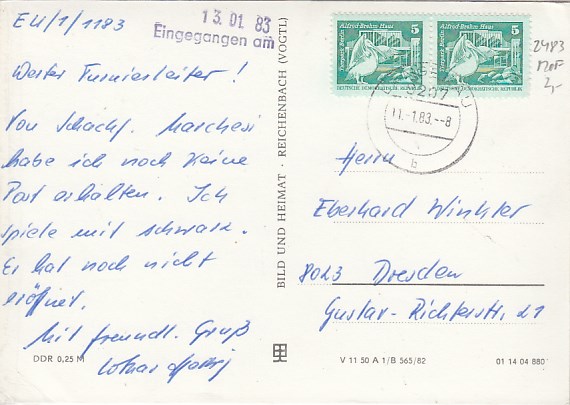 EU/1/1183
13.01.83
Eingegangen am
Werter Turnierleiter!
Von Schachf. Marchesi
habe ich noch keine
Post erhalten. Ich
spiele mit schwarz.
Er hat noch nicht
eröffnet.
Mit freundl. Gruß
Lothar
DDR 0,25 M
BILD UND HEIMAT · REICHENBACH (VOGTL)
Alfred-Brehm-Haus 5
Tierpark Berlin
DEUTSCHE DEMOKRATISCHE REPUBLIK
Alfred-Brehm-Haus 5
Tierpark Berlin
DEUTSCHE DEMOKRATISCHE REPUBLIK
2483
2,-
11.-1.83.--8
b
Herrn
Eberhard Winkler
8023 Dresden
Gustav-Richterstr. 21
V 11 50 A 1/B 565/82
01 14 04 880